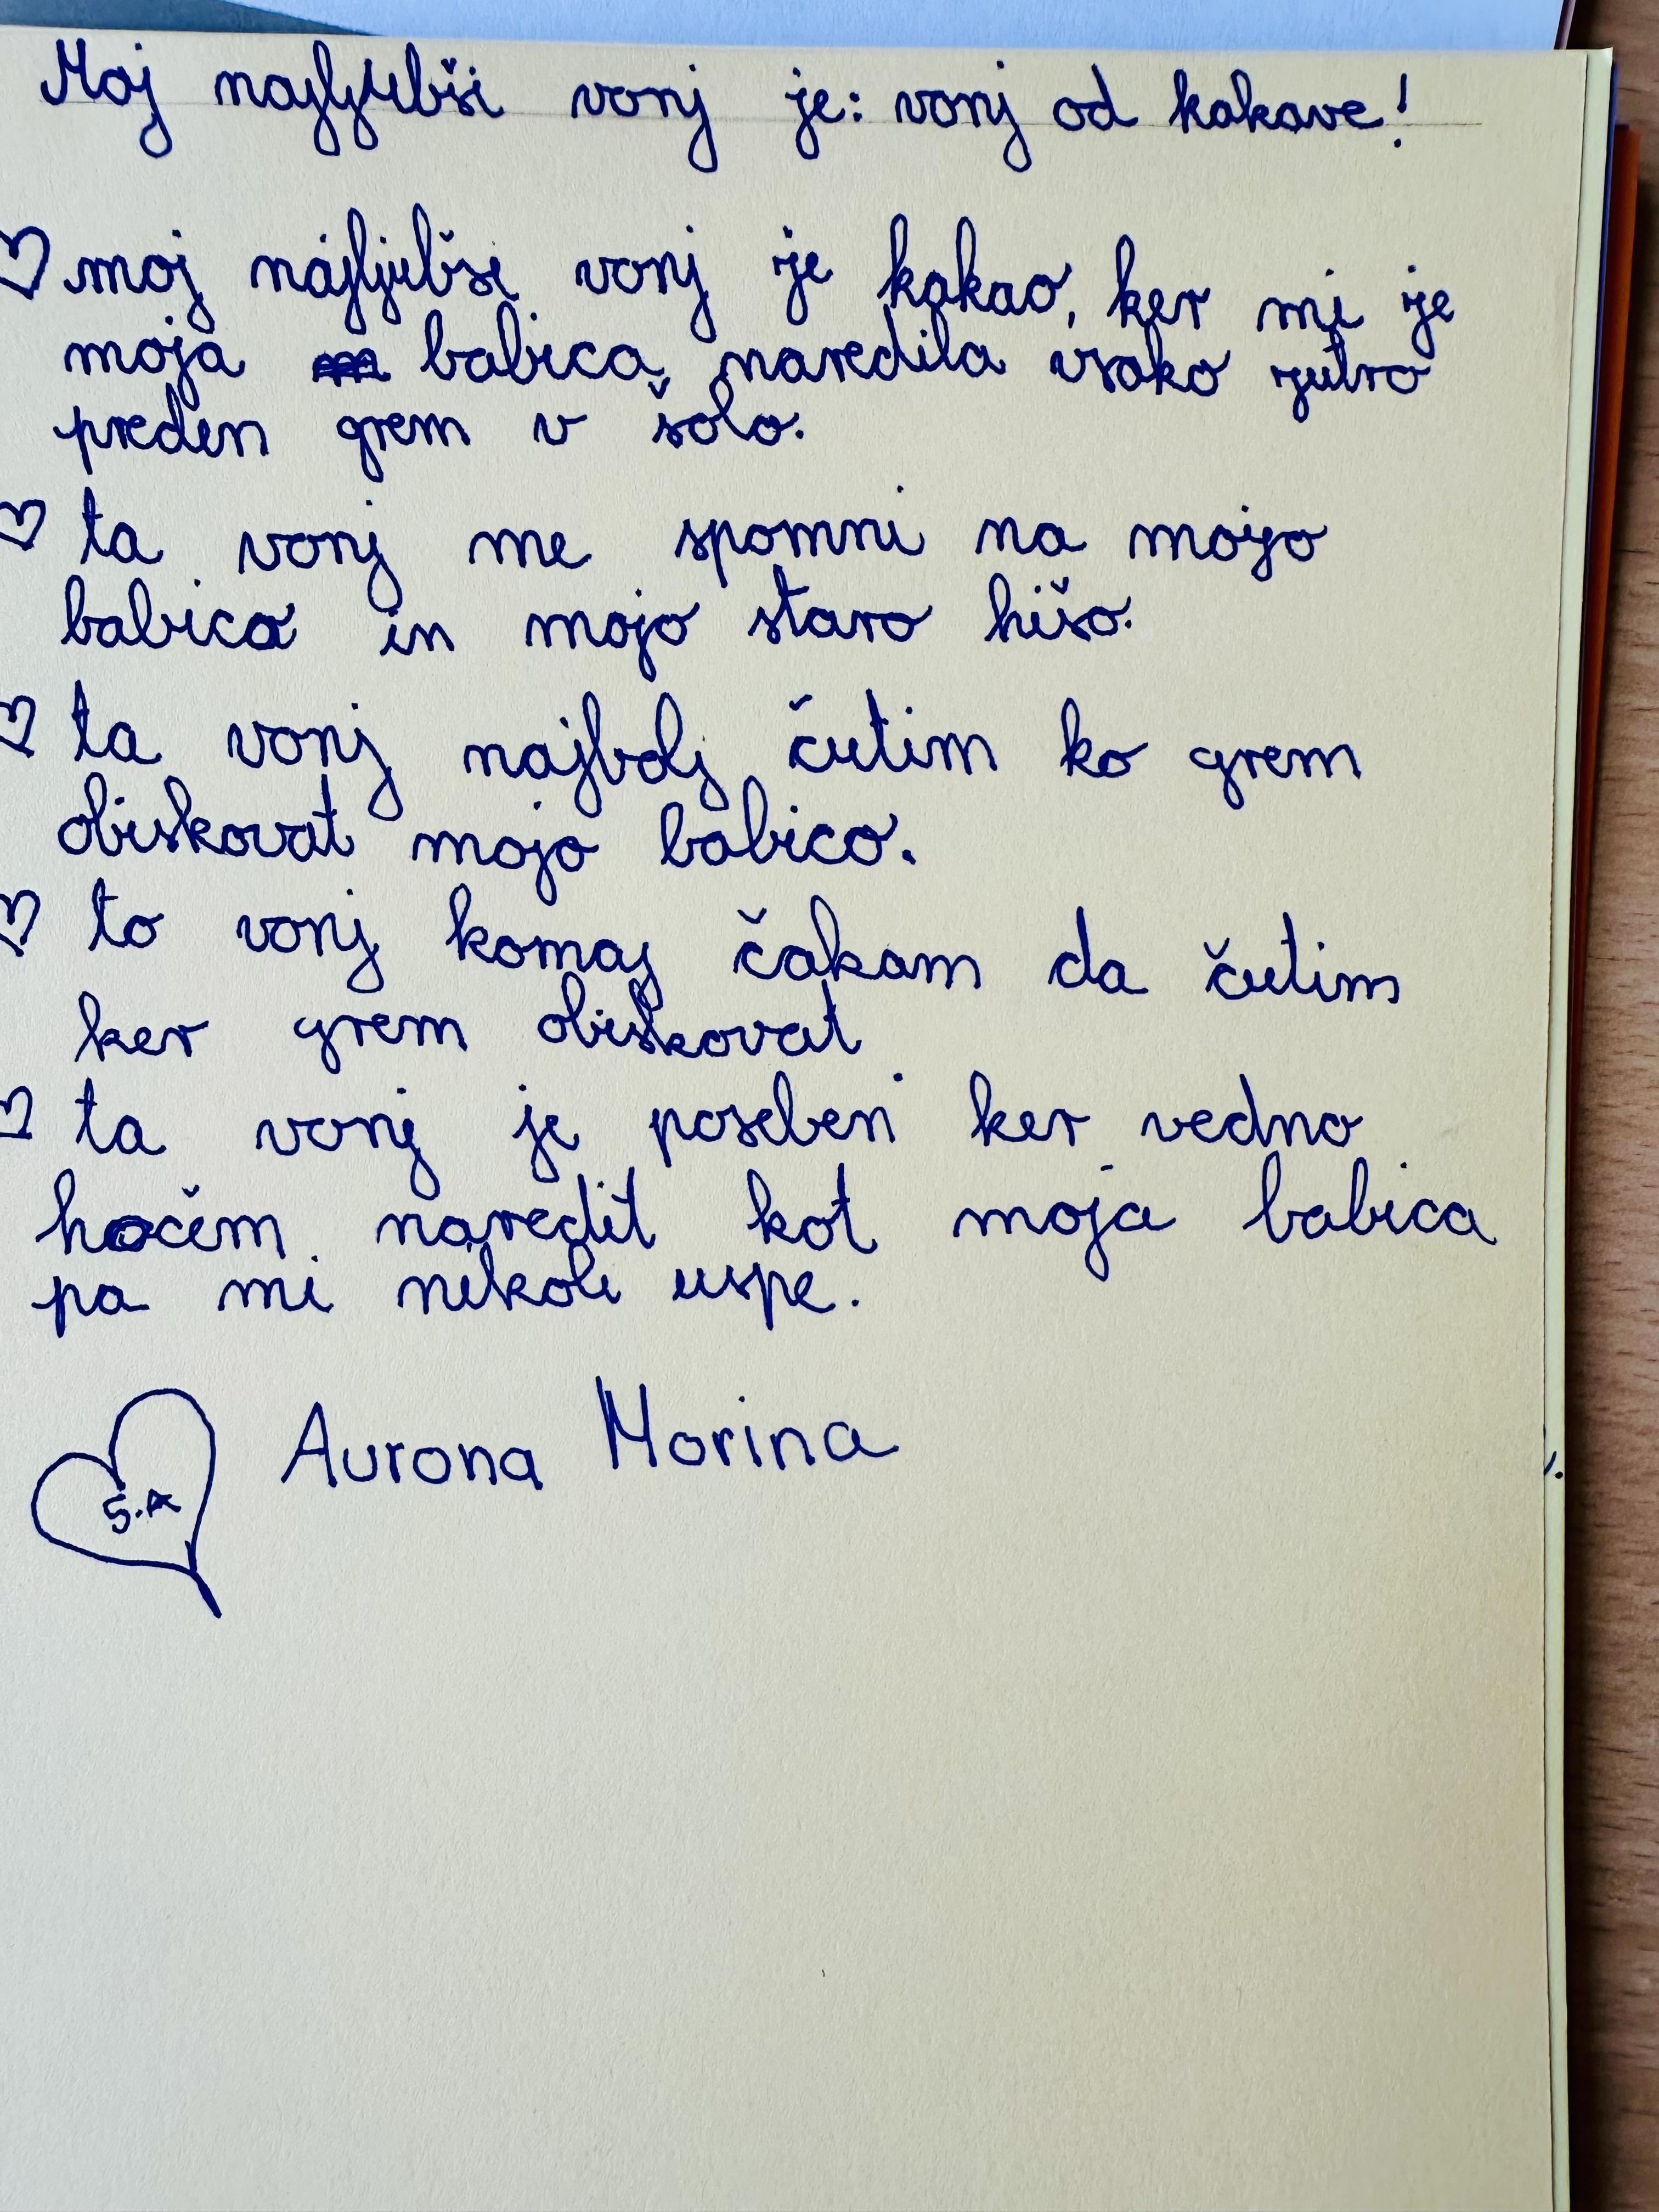 Moj najljubši vonj je: vonj od kakave!
♡ moj najljubši vonj je kakao, ker mi je
moja babica naredila vsako jutro
preden grem v šolo.
♡ ta vonj me spomni na mojo
babico in mojo staro hišo.
♡ ta vonj najbolj čutim ko grem
obiskovat mojo babico.
♡ to vonj komaj čakam da čutim
ker grem obiskovat
♡ ta vonj je poseben ker vedno
hočem naredit kot moja babica
pa mi nekoli uspe.
Aurona Morina
5.A